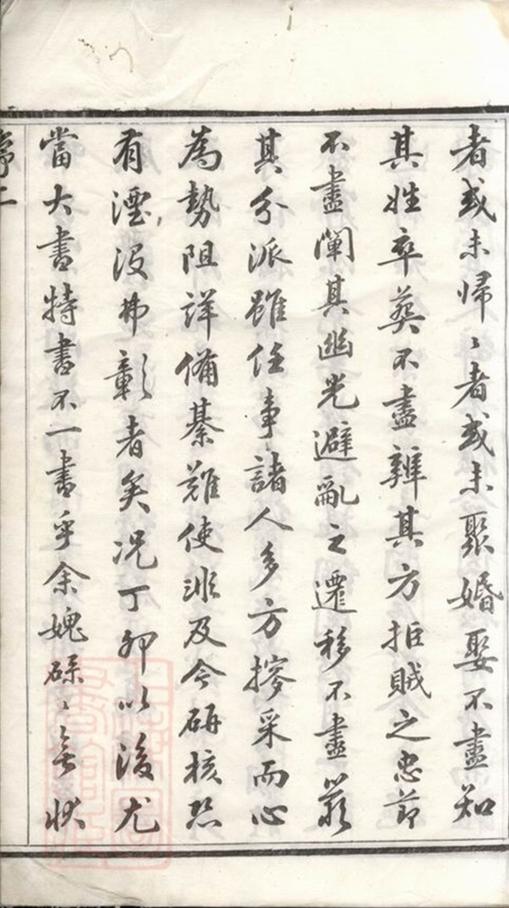 者或未歸〻者或未聚婚娶不盡知
其姓卒葬不盡辨其方拒賊之忠節
不盡闡其幽光避亂之遷移不盡
其分派雖任事諸人多方採而心
為勢阻詳備綦難使非及今研核恐
有湮沒弗彰者矣况丁卯以後尤
當大書特書不一書乎余媿碌〻無狀
序二